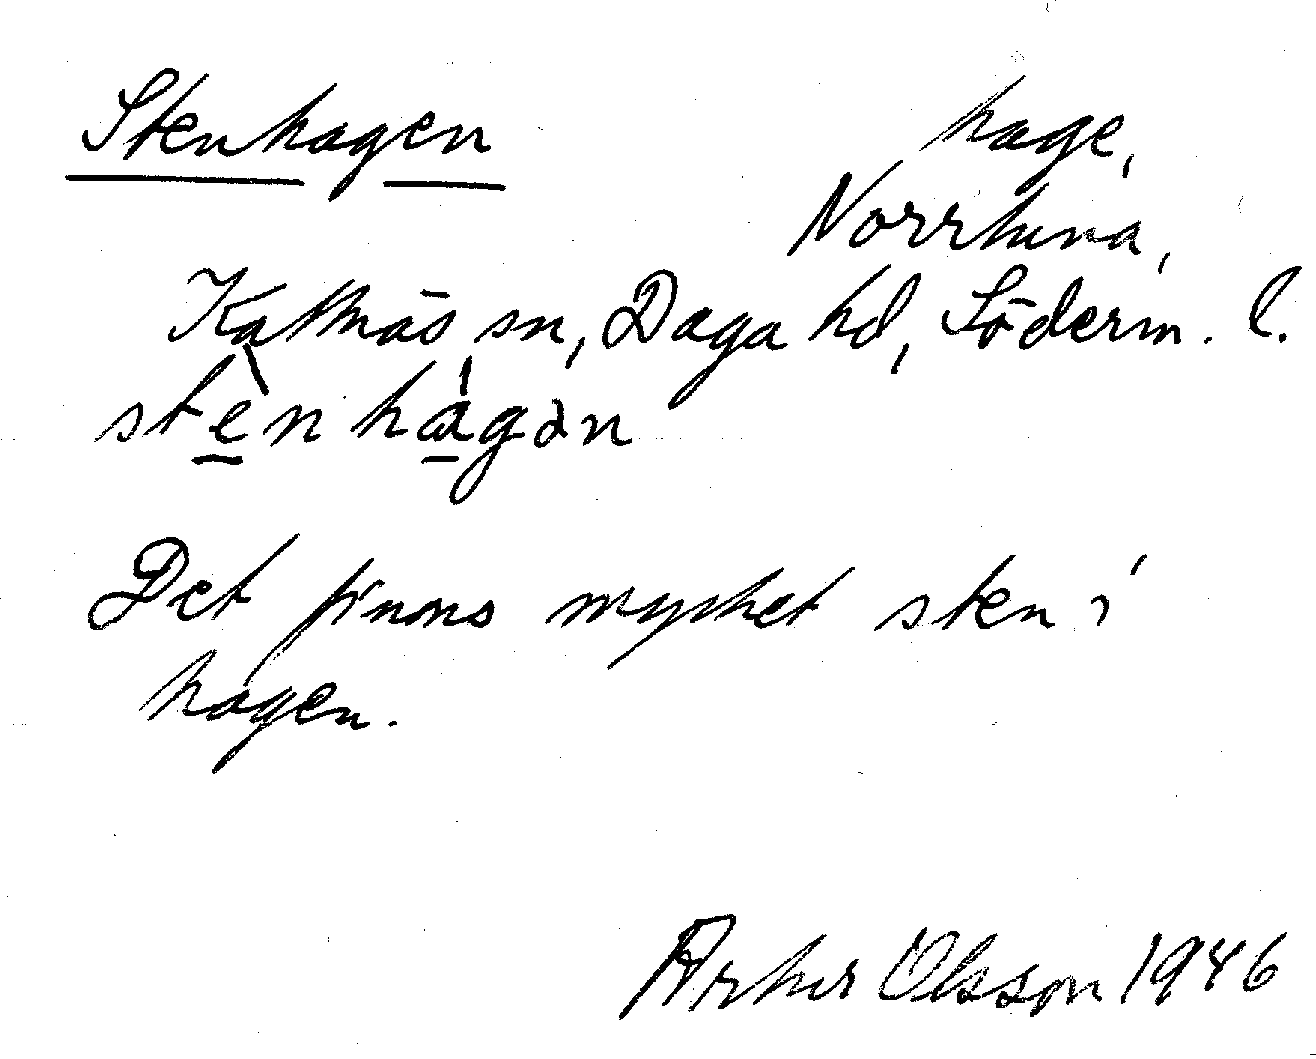 Stenhagen hage,
Norrtuna,
Kattnäs sn, Daga hd, Söderm. l.
stènhágən
Det finns mycket sten i
hagen.
Artur Olsson 1946